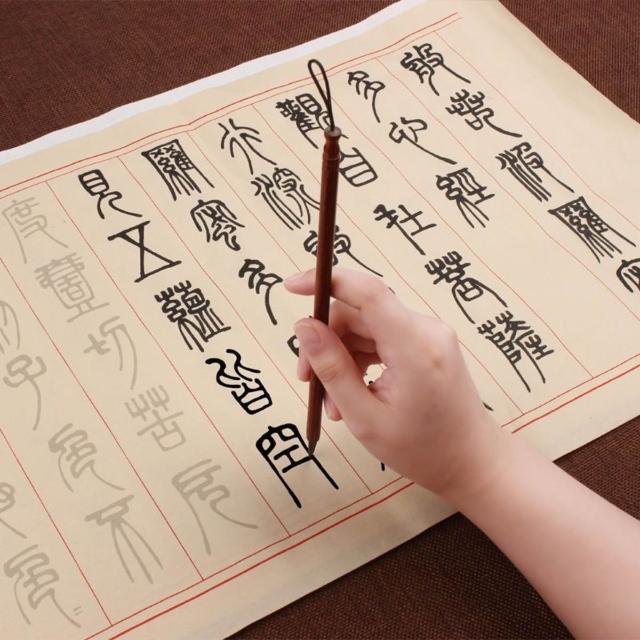 般若波羅
多心經
觀自在菩薩
行深般
羅密多
見五蘊皆空
度壹切苦厄
子色不
色